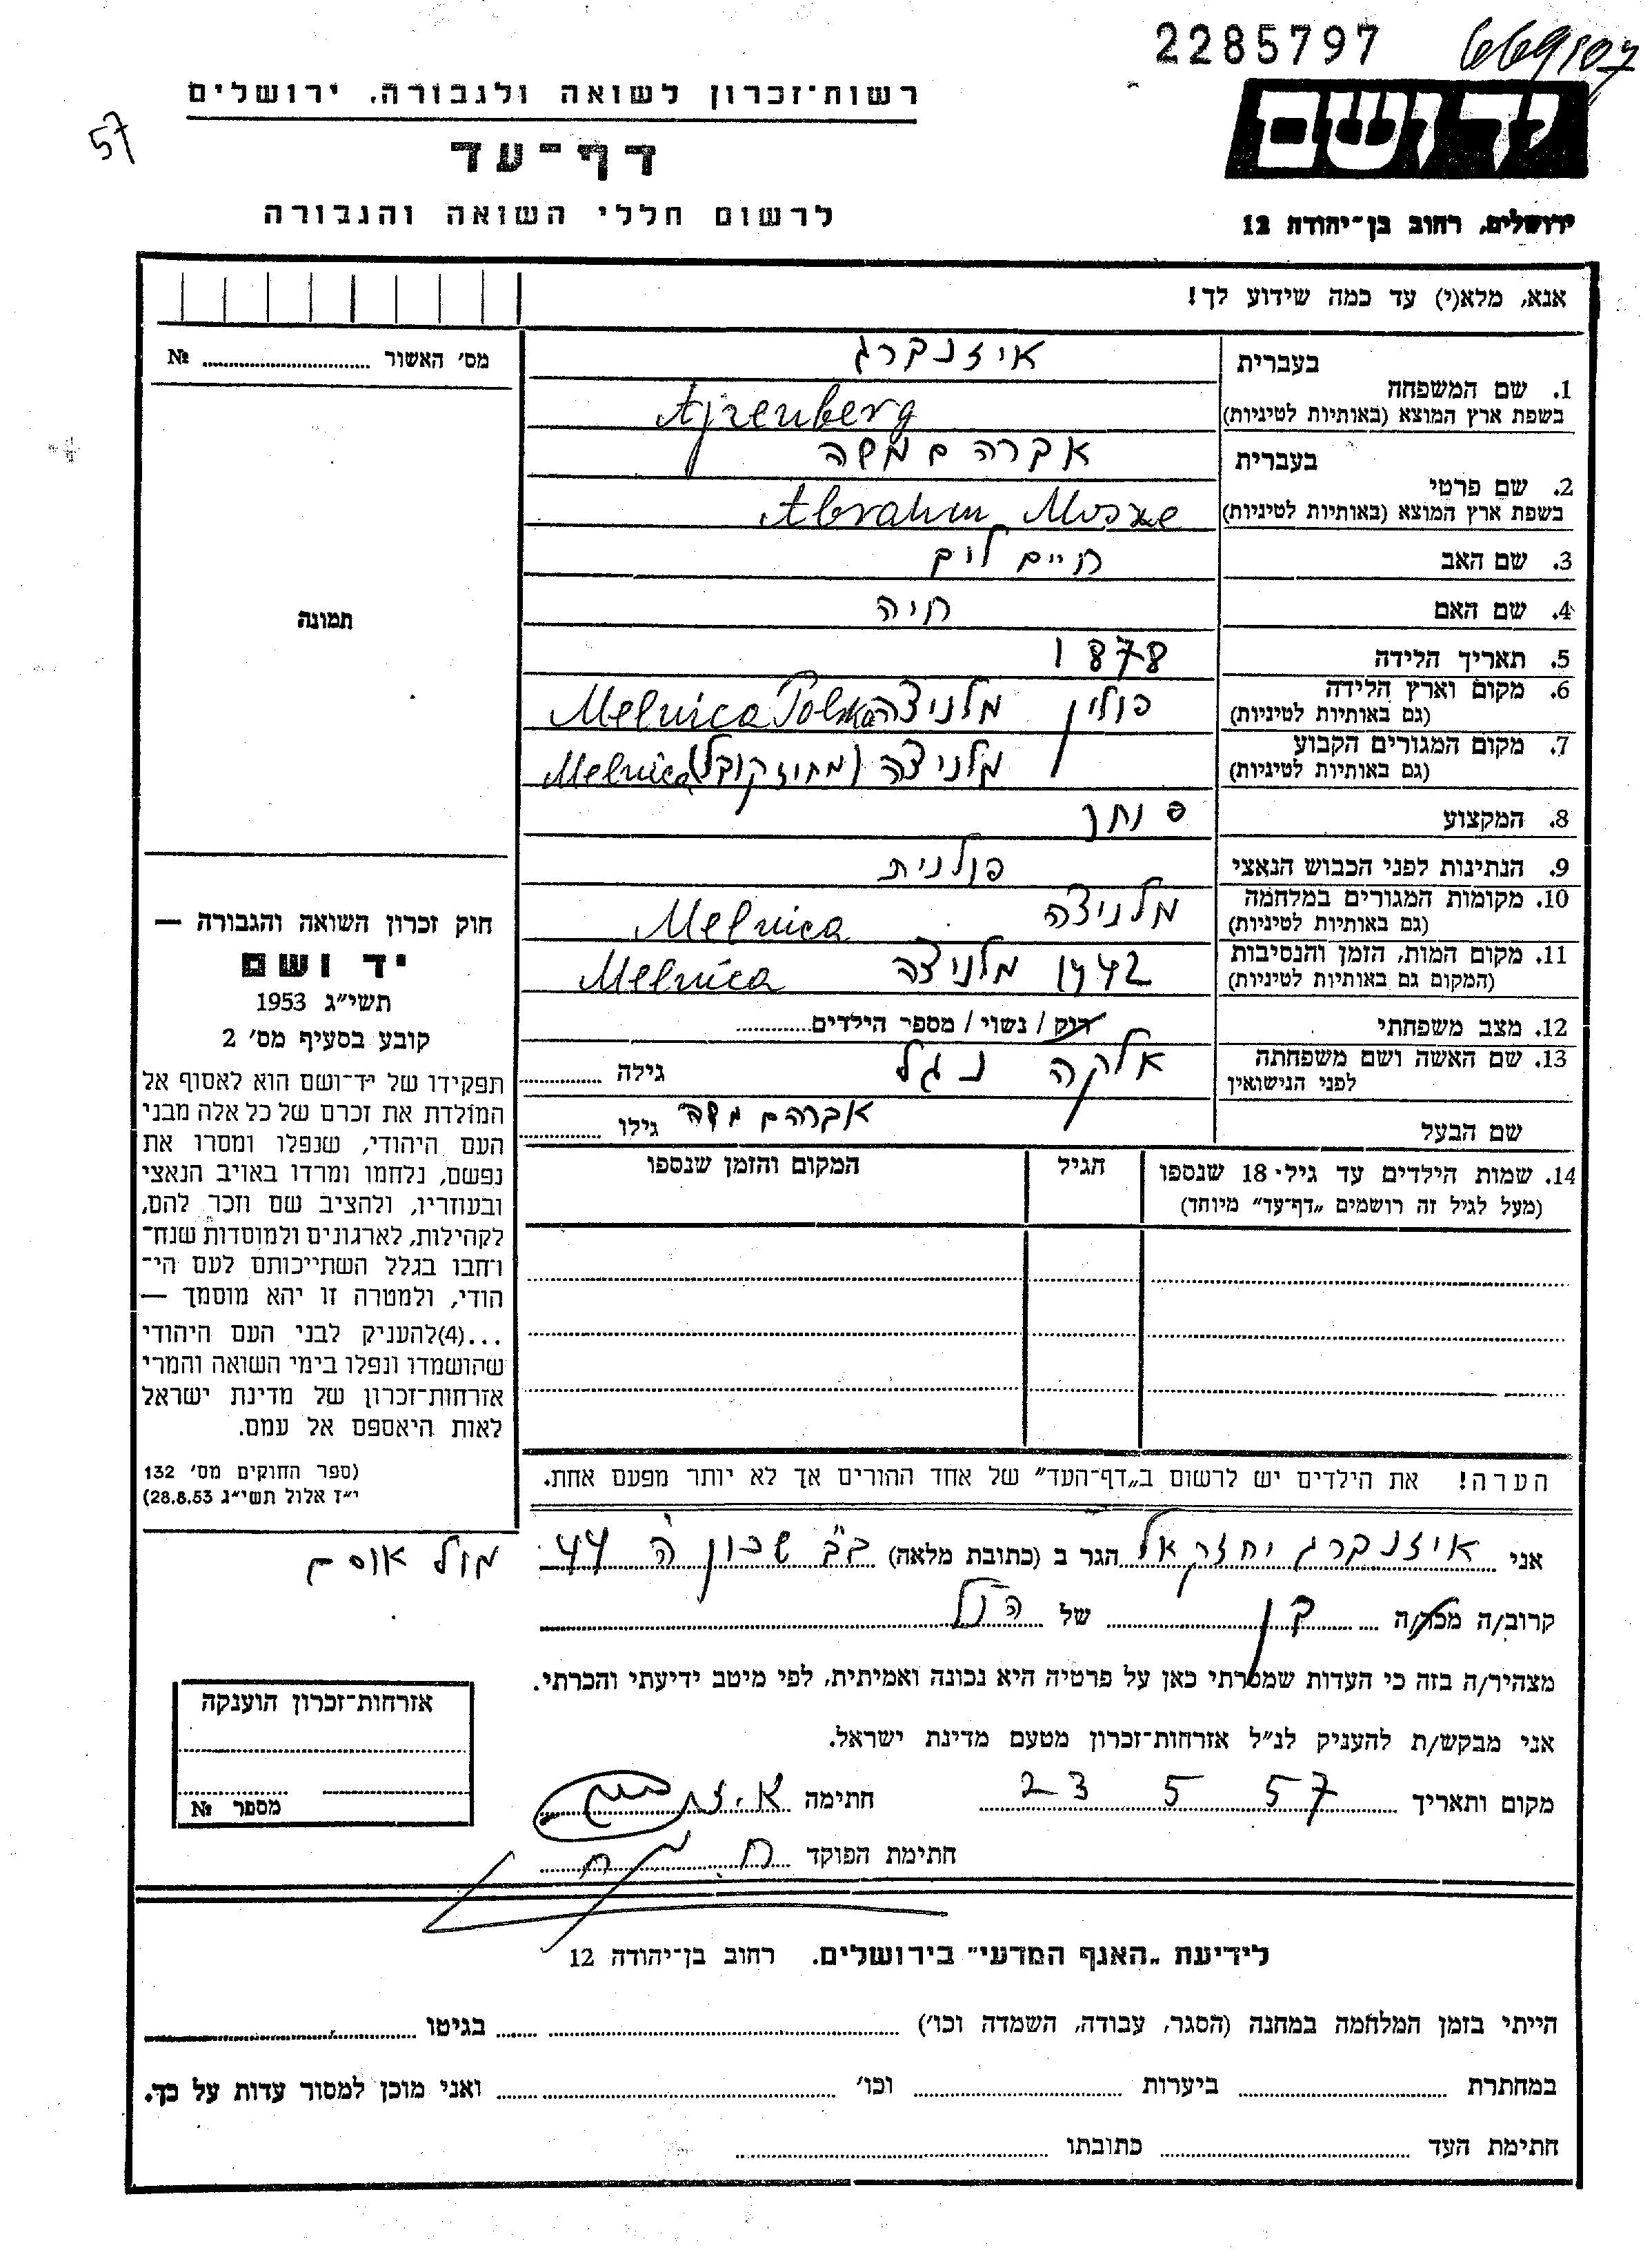 2285797 669107
רשות־זכרון לשואה ולגבורה, ירושלים
57
דף־עד
ידושם
לרשום חללי השואה והגבורה
ירושלים, רחוב בן־יהודה 12
אנא, מלא(י) עד כמה שידוע לך!
מס' האשור № ........
1. שם המשפחה
בעברית איזנברג
בשפת ארץ המוצא (באותיות לטיניות) Ajzenberg
2. שם פרטי
בעברית אברהם משה
בשפת ארץ המוצא (באותיות לטיניות) Abraham Moszke
3. שם האב חיים
4. שם האם חיה
5. תאריך הלידה 1878
6. מקום וארץ הלידה (גם באותיות לטיניות) פולין מלניצה Melnica Polska
7. מקום המגורים הקבוע (גם באותיות לטיניות) מלניצה (מחוז קובל) Melnica
8. המקצוע סוחר
9. הנתינות לפני הכבוש הנאצי פולנית
10. מקומות המגורים במלחמה (גם באותיות לטיניות) מלניצה Melnica
11. מקום המות, הזמן והנסיבות (המקום גם באותיות לטיניות) 1942 מלניצה Melnica
12. מצב משפחתי רוק / נשוי / מספר הילדים........
13. שם האשה ושם משפחתה לפני הנישואין אלקה נגל גילה ........
שם הבעל אברהם משה גילו ........
14. שמות הילדים עד גיל־18 שנספו
(מעל לגיל זה רושמים „דף־עד" מיוחד)
הגיל
המקום והזמן שנספו
תמונה
חוק זכרון השואה והגבורה —
יד ושם
תשי"ג 1953
קובע בסעיף מס' 2
תפקידו של יד־ושם הוא לאסוף אל
המולדת את זכרם של כל אלה מבני
העם היהודי, שנפלו ומסרו את
נפשם, נלחמו ומרדו באויב הנאצי
ובעוזריו, ולהציב שם וזכר להם,
לקהילות, לארגונים ולמוסדות שנח־
רחבו בגלל השתייכותם לעם הי־
הודי, ולמטרה זו יהא מוסמך —
...(4)להעניק לבני העם היהודי
שהושמדו ונפלו בימי השואה והמרי
אזרחות־זכרון של מדינת ישראל
לאות היאספם אל עמם.
(ספר החוקים מס' 132
י"ז אלול תשי"ג 28.8.53)
הערה! את הילדים יש לרשום ב„דף־העד" של אחד ההורים אך לא יותר מפעם אחת.
אני איזנברג יחזקאל הגר ב (כתובת מלאה) ב"ב שכון ה' 44 מול אוסם
קרוב/ה מכר/ה בן של הנ"ל
מצהיר/ה בזה כי העדות שמסרתי כאן על פרטיה היא נכונה ואמיתית, לפי מיטב ידיעתי והכרתי.
אני מבקש/ת להעניק לנ"ל אזרחות־זכרון מטעם מדינת ישראל.
מקום ותאריך 23 5 57 חתימה
חתימת הפוקד
אזרחות־זכרון הוענקה
מספר №
לידיעת „האגף המדעי" בירושלים. רחוב בן־יהודה 12
הייתי בזמן המלחמה במחנה (הסגר, עבודה, השמדה וכו') ........ בגיטו ........
במחתרת ........ ביערות ........ וכו' ........ ואני מוכן למסור עדות על כך.
חתימת העד ........ כתובתו ........